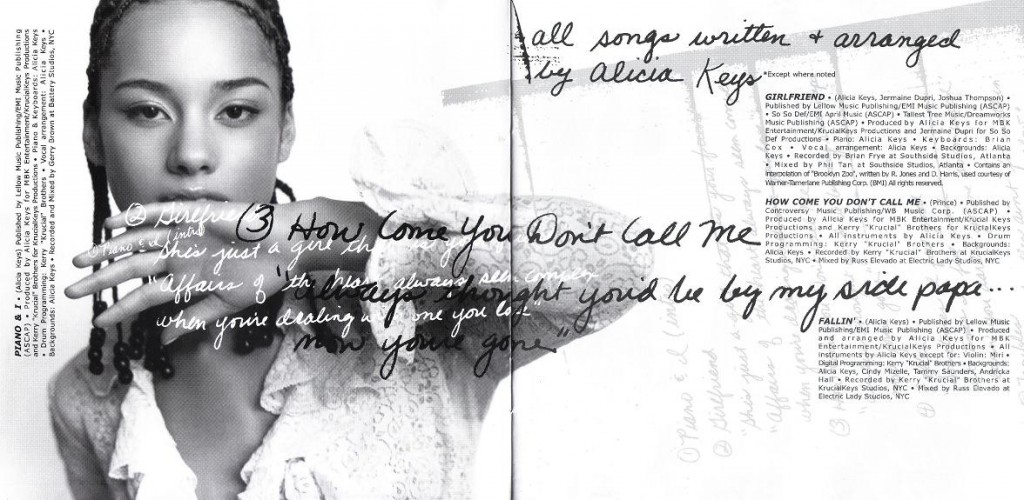 PIANO & I • (Alicia Keys) Published by Lellow Music Publishing/EMI Music Publishing
(ASCAP) • Produced by Alicia Keys for MBK Entertainment/KrucialKeys Productions
and Kerry "Krucial" Brothers for KrucialKeys Productions • Piano & Keyboards: Alicia Keys
• Drum Programming: Kerry "Krucial" Brothers • Vocal arrangement: Alicia Keys •
Background: Alicia Keys • Recorded and Mixed by Gerry Brown at Battery Studios, NYC
all songs written + arranged
by Alicia Keys
*Except where noted
① Piano & I (intro)
② Girlfriend
She's just a girl
"Affairs of the heart always seem complex
when you're dealing w/ one you lost
③ How Come You Don't Call Me
"always thought you'd be by my side papa....
now you're gone"
GIRLFRIEND • (Alicia Keys, Jermaine Dupri, Joshua Thompson) •
Published by Lellow Music Publishing/EMI Music Publishing (ASCAP)
• So So Def/EMI April Music (ASCAP) • Tallest Tree Music/Dreamworks
Music Publishing (ASCAP) • Produced by Alicia Keys for MBK
Entertainment/KrucialKeys Productions and Jermaine Dupri for So So
Def Productions • Piano: Alicia Keys • Keyboards: Brian
Cox • Vocal arrangement: Alicia Keys • Backgrounds: Alicia
Keys • Recorded by Brian Frye at Southside Studios, Atlanta
• Mixed by Phil Tan at Southside Studios, Atlanta • Contains an
interpolation of "Brooklyn Zoo", written by R. Jones and D. Harris, used courtesy of
Warner-Tamerlane Publishing Corp. (BMI) All rights reserved.
HOW COME YOU DON'T CALL ME • (Prince) • Published by
Controversy Music Publishing/WB Music Corp. (ASCAP) •
Produced by Alicia Keys for MBK Entertainment/Krucial Keys
Productions and Kerry "Krucial" Brothers for KrucialKeys
Productions • All instruments by Alicia Keys • Drum
Programming: Kerry "Krucial" Brothers • Backgrounds:
Alicia Keys • Recorded by Kerry "Krucial" Brothers at KrucialKeys
Studios, NYC • Mixed by Russ Elevado at Electric Lady Studios, NYC
FALLIN' • (Alicia Keys) • Published by Lellow Music
Publishing/EMI Music Publishing (ASCAP) • Produced
and arranged by Alicia Keys for MBK
Entertainment/KrucialKeys Productions • All
instruments by Alicia Keys except for: Violin: Miri •
Digital Programming: Kerry "Krucial" Brothers • Backgrounds:
Alicia Keys, Cindy Mizelle, Tammy Saunders, Andricka
Hall • Recorded by Kerry "Krucial" Brothers at
KrucialKeys Studios, NYC • Mixed by Russ Elevado at
Electric Lady Studios, NYC
① Piano & I
② Girlfriend
"She's just a
"Affairs of
when you're
③
④